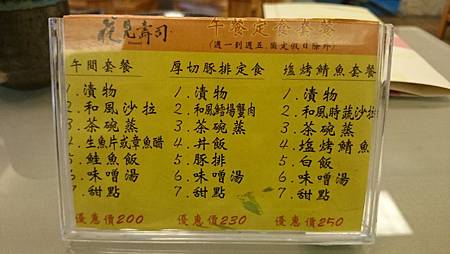 花見壽司
午餐定食套餐
(週一到週五 國定假日除外)
午間套餐
1.漬物
2.和風沙拉
3.茶碗蒸
4.生魚片或章魚醋
5.鮭魚飯
6.味噌湯
7.甜點
優惠價200
厚切豚排定食
1.漬物
2.和風鱈場蟹肉
3.茶碗蒸
4.丼飯
5.豚排
6.味噌湯
7.甜點
優惠價230
塩烤鯖魚套餐
1.漬物
2.和風時蔬沙拉
3.茶碗蒸
4.塩烤鯖魚
5.白飯
6.味噌湯
7.甜點
優惠價250